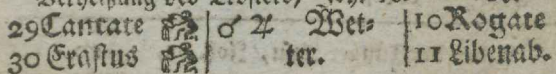 29 Cantate ♂ ♃ Wet⸗ 10 Rogate
30 Erastus ter. 11 Libenab.